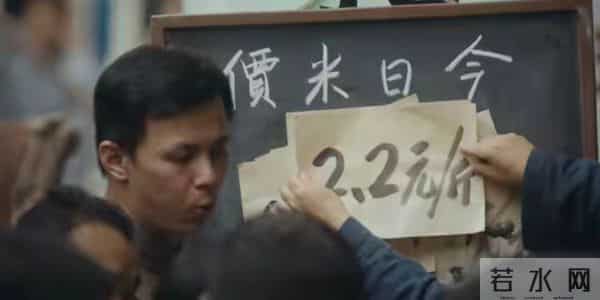 今日米價
2.2元/斤
若水网